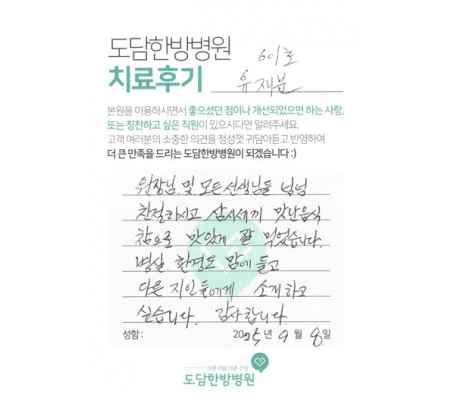 도담한방병원
601호
치료후기
유재분
본원을 이용하시면서 좋으셨던 점이나 개선되었으면 하는 사항,
또는 칭찬하고 싶은 직원이 있으시다면 알려주세요.
고객 여러분의 소중한 의견을 정성껏 귀담아듣고 반영하여
더 큰 만족을 드리는 도담한방병원이 되겠습니다 :)
원장님 및 모든 선생님들 넘넘
친절하시고 삼시세끼 맛난음식
참으로 맛있게 잘 먹었습니다.
병실 환경도 맘에 들고
다른 지인들에게 소개하고
싶습니다. 감사합니다.
성함 : 2025년 9월 8일
도담한방병원